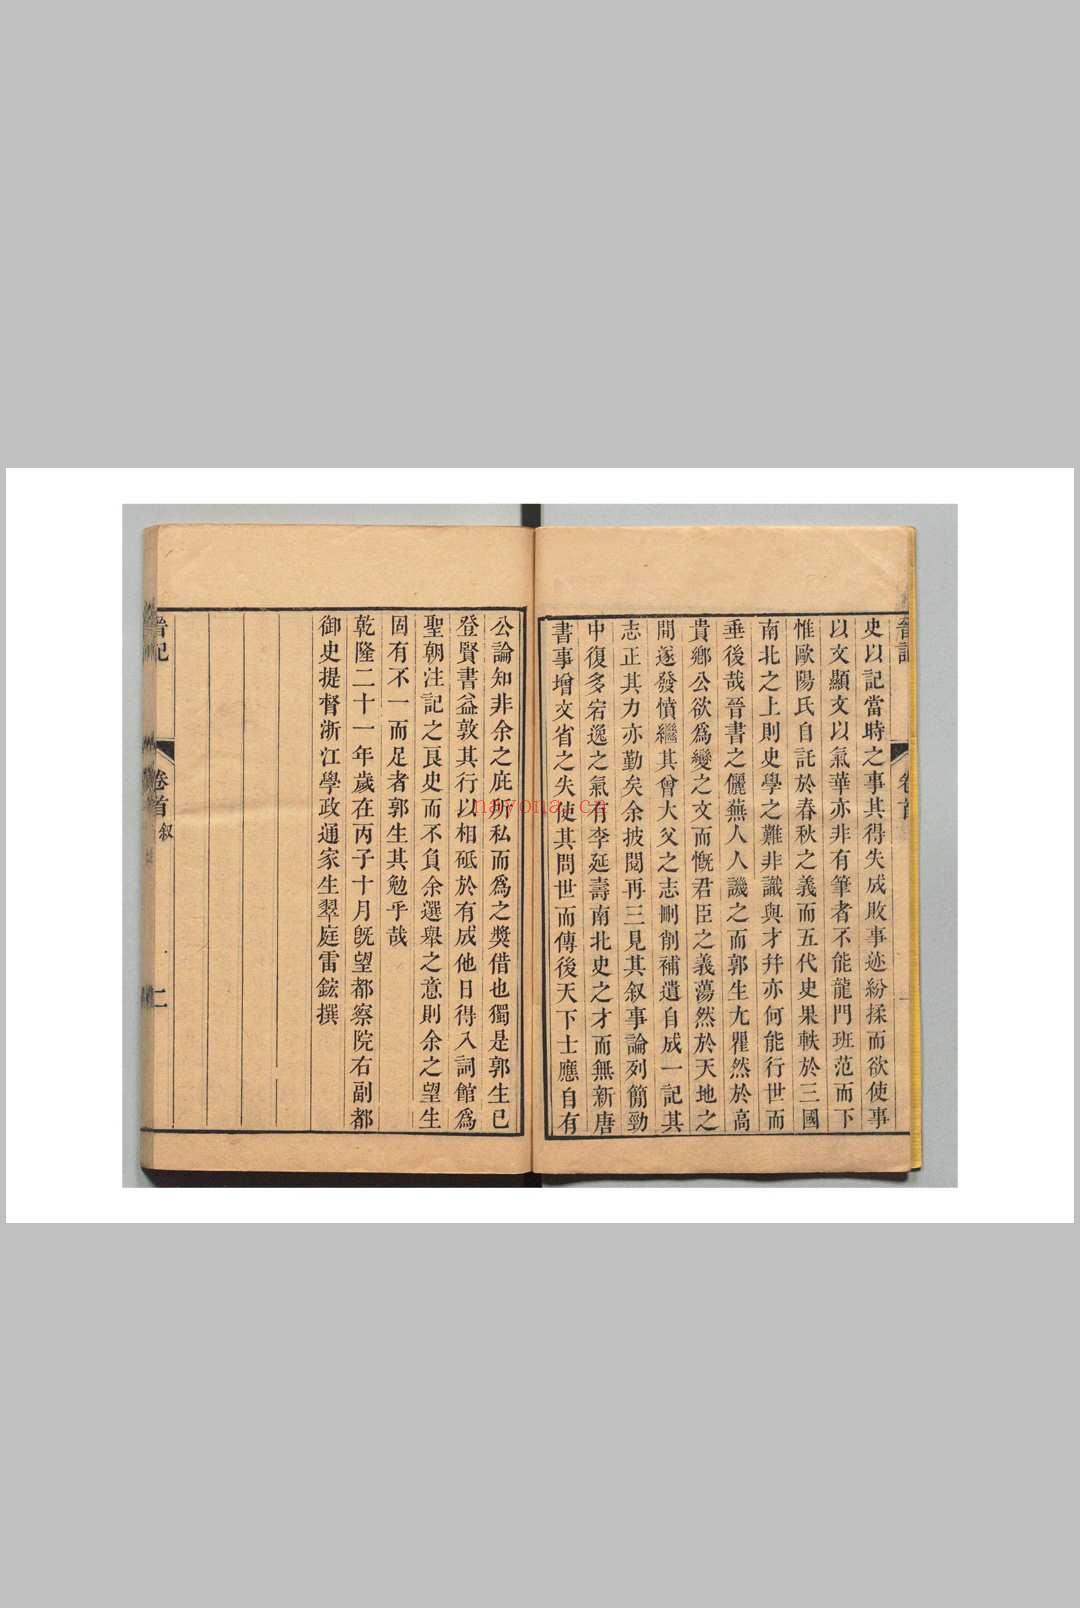 史以記當時之事其得失成敗事迹紛揉而欲使事
以文顯文以氣華亦非有筆者不能龍門班范而下
惟歐陽氏自託於春秋之義而五代史果軼於三國
南北之上則史學之難非識與才幷亦何能行世而
垂後哉晉書之儷蕪人人譏之而郭生尢瞿然於高
貴鄉公欲爲變之文而慨君臣之義蕩然於天地之
間遂發憤繼其曾大父之志刪削補遺自成一記其
志正其力亦勤矣余披閱再三見其叙事論列簡勁
中復多宕逸之氣有李延壽南北史之才而無新唐
書事增文省之失使其問世而傳後天下士應自有
公論知非余之庇所私而爲之獎借也獨是郭生已
登賢書益敦其行以相砥於有成他日得入詞館爲
聖朝注記之良史而不負余選舉之意則余之望生
固有不一而足者郭生其勉乎哉
乾隆二十一年歲在丙子十月旣望都察院右副都
御史提督浙江學政通家生翠庭雷鋐撰
晉記
卷首
叙
二
nayona.cn